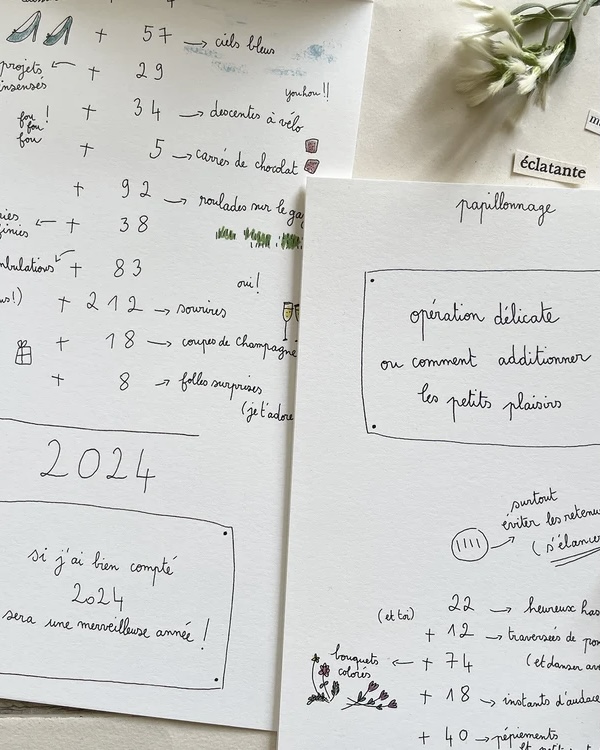 + 57 → ciels bleus
projets ← + 29
insensés
youhou !!
+ 34 → descentes à vélo
fou !
fou
fou
+ 5 → carrés de chocolat
+ 92 → roulades sur le
← + 38
+ 83
oui !
+ 212 → sourires
+ 18 → coupes de champagne
+ 8 → folles surprises
(je t'adore
2024
si j'ai bien compté
2024
sera une merveilleuse année !
éclatante
papillonnage
opération délicate
ou comment additionner
les petits plaisirs
surtout
éviter les
(s'élancer
(et toi) 22 → heureux
+ 12 → traversées de
bouquets ← + 74 (et danser
colorés
+ 18 → instants d'audace
+ 40 → pépiements